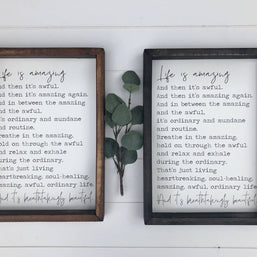 Life is amazing
And then it's awful.
And then it's amazing again.
And in between the amazing
and the awful.
it's ordinary and mundane
and routine.
Breathe in the amazing.
hold on through the awful
and relax and exhale
during the ordinary.
That's just living
heartbreaking, soul-healing.
amazing, awful, ordinary life.
And it's breathtakingly beautiful
Life is amazing
And then it's awful.
And then it's amazing again.
And in between the amazing
and the awful.
it's ordinary and mundane
and routine.
Breathe in the amazing.
hold on through the awful
and relax and exhale
during the ordinary.
That's just living
heartbreaking, soul-healing.
amazing, awful, ordinary life.
And it's breathtakingly beautiful